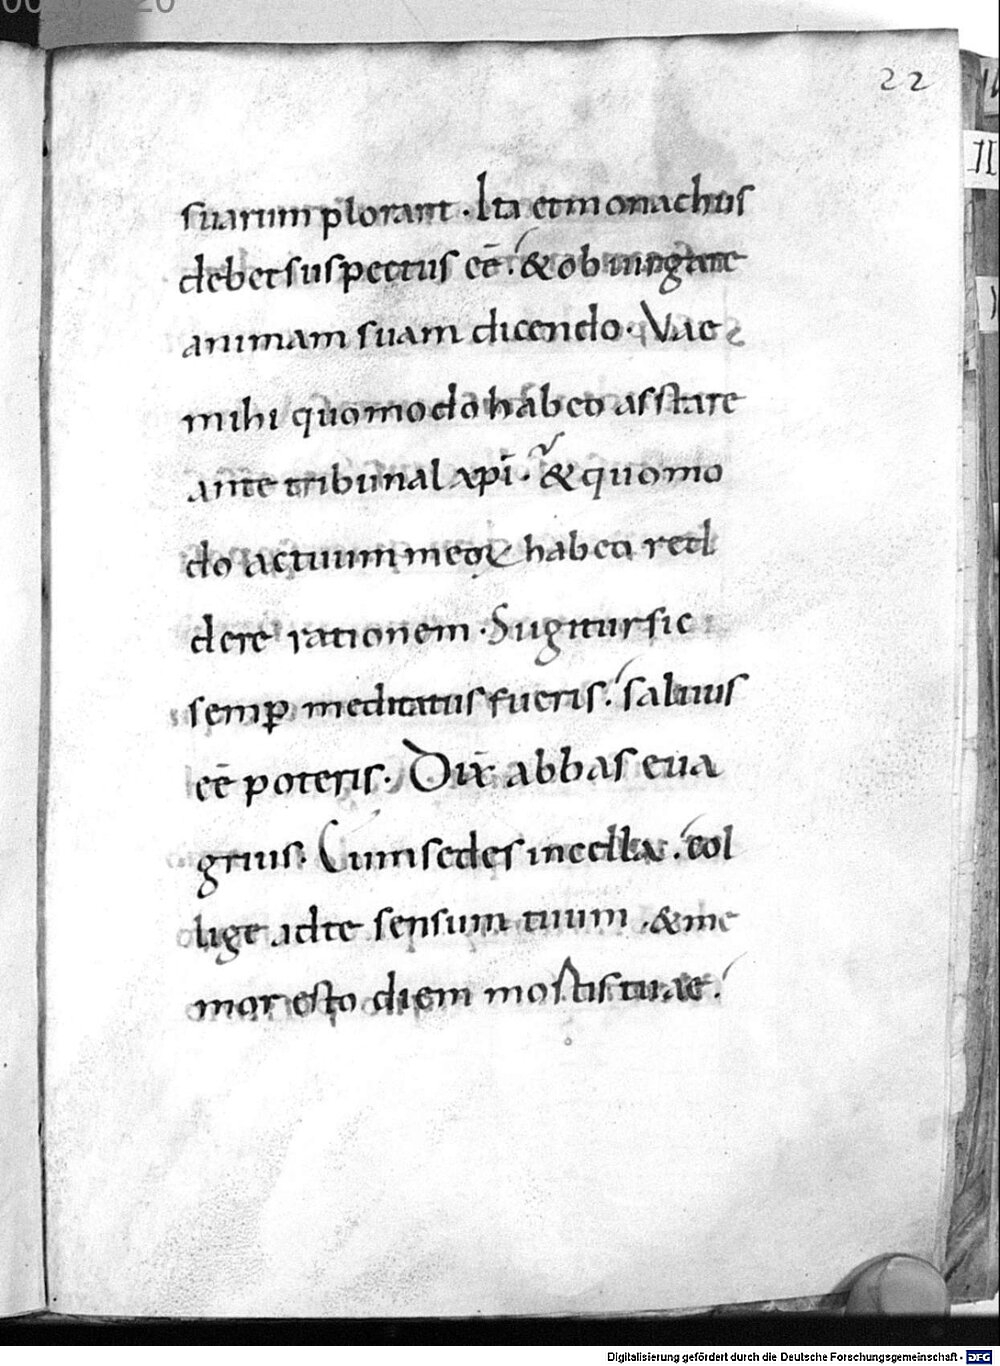 22
suarum plorant. Ita et monachus
debet suspectus eē. & obiurgare
animam suam dicendo. Vae
mihi quomodo habeo asstare
ante tribunal xpī. & quomo
do actuum meoꝝ habeo red
dere rationem. Si igitur sic
semꝑ meditatus fueris. saluus
eē poteris. Dix̄ abbas eua
grius. Cum sedes in cella. col
lige ad te sensum tuum. & me
mor esto diem mortis tuae.
Digitalisierung gefördert durch die Deutsche Forschungsgemeinschaft - DFG